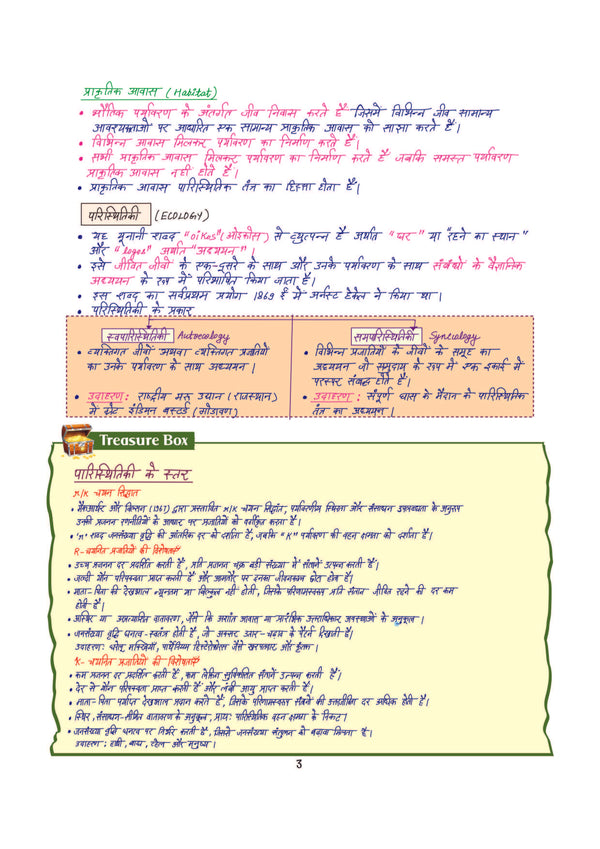 प्राकृतिक आवास (Habitat)
• भौतिक पर्यावरण के अंतर्गत जीव निवास करते हैं जिसमें विभिन्न जीव सामान्य
आवश्यकताओं पर आधारित एक सामान्य प्राकृतिक आवास को साझा करते हैं।
• विभिन्न आवास मिलकर पर्यावरण का निर्माण करते हैं।
• सभी प्राकृतिक आवास मिलकर पर्यावरण का निर्माण करते हैं जबकि समस्त पर्यावरण
प्राकृतिक आवास नहीं होते हैं।
• प्राकृतिक आवास पारिस्थितिक तंत्र का हिस्सा होता है।
परिस्थितिकी (ECOLOGY)
• यह यूनानी शब्द "oikos" (ओइकोस) से व्युत्पन्न है अर्थात "घर" या "रहने का स्थान"
और "logos" अर्थात "अध्ययन"।
• इसे जीवित जीवों के एक-दूसरे के साथ और उनके पर्यावरण के साथ संबंधों के वैज्ञानिक
अध्ययन के रूप में परिभाषित किया जाता है।
• इस शब्द का सर्वप्रथम प्रयोग 1869 ई में अर्नस्ट हेकेल ने किया था।
• परिस्थितिकी के प्रकार
स्वपारिस्थितिकी Autoecology
• व्यक्तिगत जीवों अथवा व्यक्तिगत प्रजातियों
का उनके पर्यावरण के साथ अध्ययन।
• उदाहरण: राष्ट्रीय मरु उद्यान (राजस्थान)
में ग्रेट इंडियन बस्टर्ड (गोडावण)
समपारिस्थितिकी Synecology
• विभिन्न प्रजातियों के जीवों के समूह का
अध्ययन जो समुदाय के रूप में एक इकाई में
परस्पर संबद्ध होते हैं।
• उदाहरण: संपूर्ण घास के मैदान के पारिस्थितिक
तंत्र का अध्ययन।
Treasure Box
पारिस्थितिकी के स्तर
r/K चयन सिद्धांत
• मैकआर्थर और विल्सन (1967) द्वारा प्रस्तावित r/K चयन सिद्धांत, पर्यावरणीय स्थिरता और संसाधन उपलब्धता के अनुरूप
उनकी प्रजनन रणनीतियों के आधार पर प्रजातियों को वर्गीकृत करता है।
• 'r' शब्द जनसंख्या वृद्धि की आंतरिक दर को दर्शाता है, जबकि "K" पर्यावरण की वहन क्षमता को दर्शाता है।
R-चयनित प्रजातियों की विशेषताएँ
• उच्च प्रजनन दर प्रदर्शित करती हैं, प्रति प्रजनन चक्र बड़ी संख्या में संतानें उत्पन्न करती हैं।
• जल्दी यौन परिपक्वता प्राप्त करती हैं और आमतौर पर इनका जीवनकाल छोटा होता है।
• माता-पिता की देखभाल न्यूनतम या बिल्कुल नहीं होती, जिसके परिणामस्वरूप प्रति संतान जीवित रहने की दर कम
होती है।
• अस्थिर या अप्रत्याशित वातावरण, जैसे कि अशांत आवास या प्रारंभिक उत्तराधिकार अवस्थाओं के अनुकूल।
• जनसंख्या वृद्धि घनत्व-स्वतंत्र होती है, जो अक्सर उतार-चढ़ाव के पैटर्न दिखाती है।
उदाहरण: घरेलू मक्खियाँ, पार्थेनियम हिस्टेरोफोरस जैसे खरपतवार और कृंतक।
K- चयनित प्रजातियों की विशेषताएँ
• कम प्रजनन दर प्रदर्शित करती हैं, कम लेकिन सुविकसित संतानें उत्पन्न करती हैं।
• देर से यौन परिपक्वता प्राप्त करती हैं और लंबी आयु प्राप्त करती हैं।
• माता-पिता पर्याप्त देखभाल प्रदान करते हैं, जिसके परिणामस्वरूप संतानों की उत्तरजीविता दर अधिक होती है।
• स्थिर, संसाधन-सीमित वातावरण के अनुकूल, प्रायः पारिस्थितिक वहन क्षमता के निकट।
• जनसंख्या वृद्धि घनत्व पर निर्भर करती है, जिससे जनसंख्या संतुलन को बढ़ावा मिलता है।
उदाहरण: हाथी, बाघ, व्हेल और मनुष्य।
3